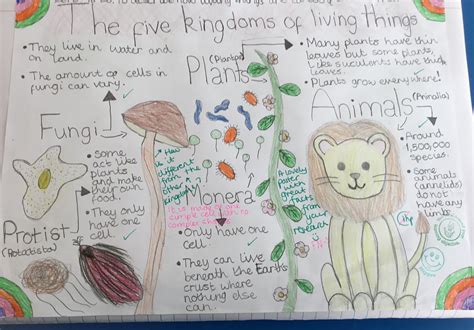 The five kingdoms of living things
• They live in water and
on land.
• The amount of cells in
fungi can vary.
Fungi
Plants
(Plantae)
• Many plants have thin
leaves but some plants,
like succulents have thick
leaves.
• Plants grow everywhere!
Animals
(Animalia)
• Around
1,500,000
species.
• Some
animals
(annelids)
do not
have any
limbs.
• Some
act like
plants
and make
their own
food.
• They only
have one
cell.
Protist
(Protoctista)
How
is it
different
from the
other
kingdoms
Monera
It is made of one
simple cell with no
complex
• Only have one
cell.
• They can live
beneath the Earth's
crust where
nothing else
can.
A lovely
poster
with
great
facts
from
your
research
1hp